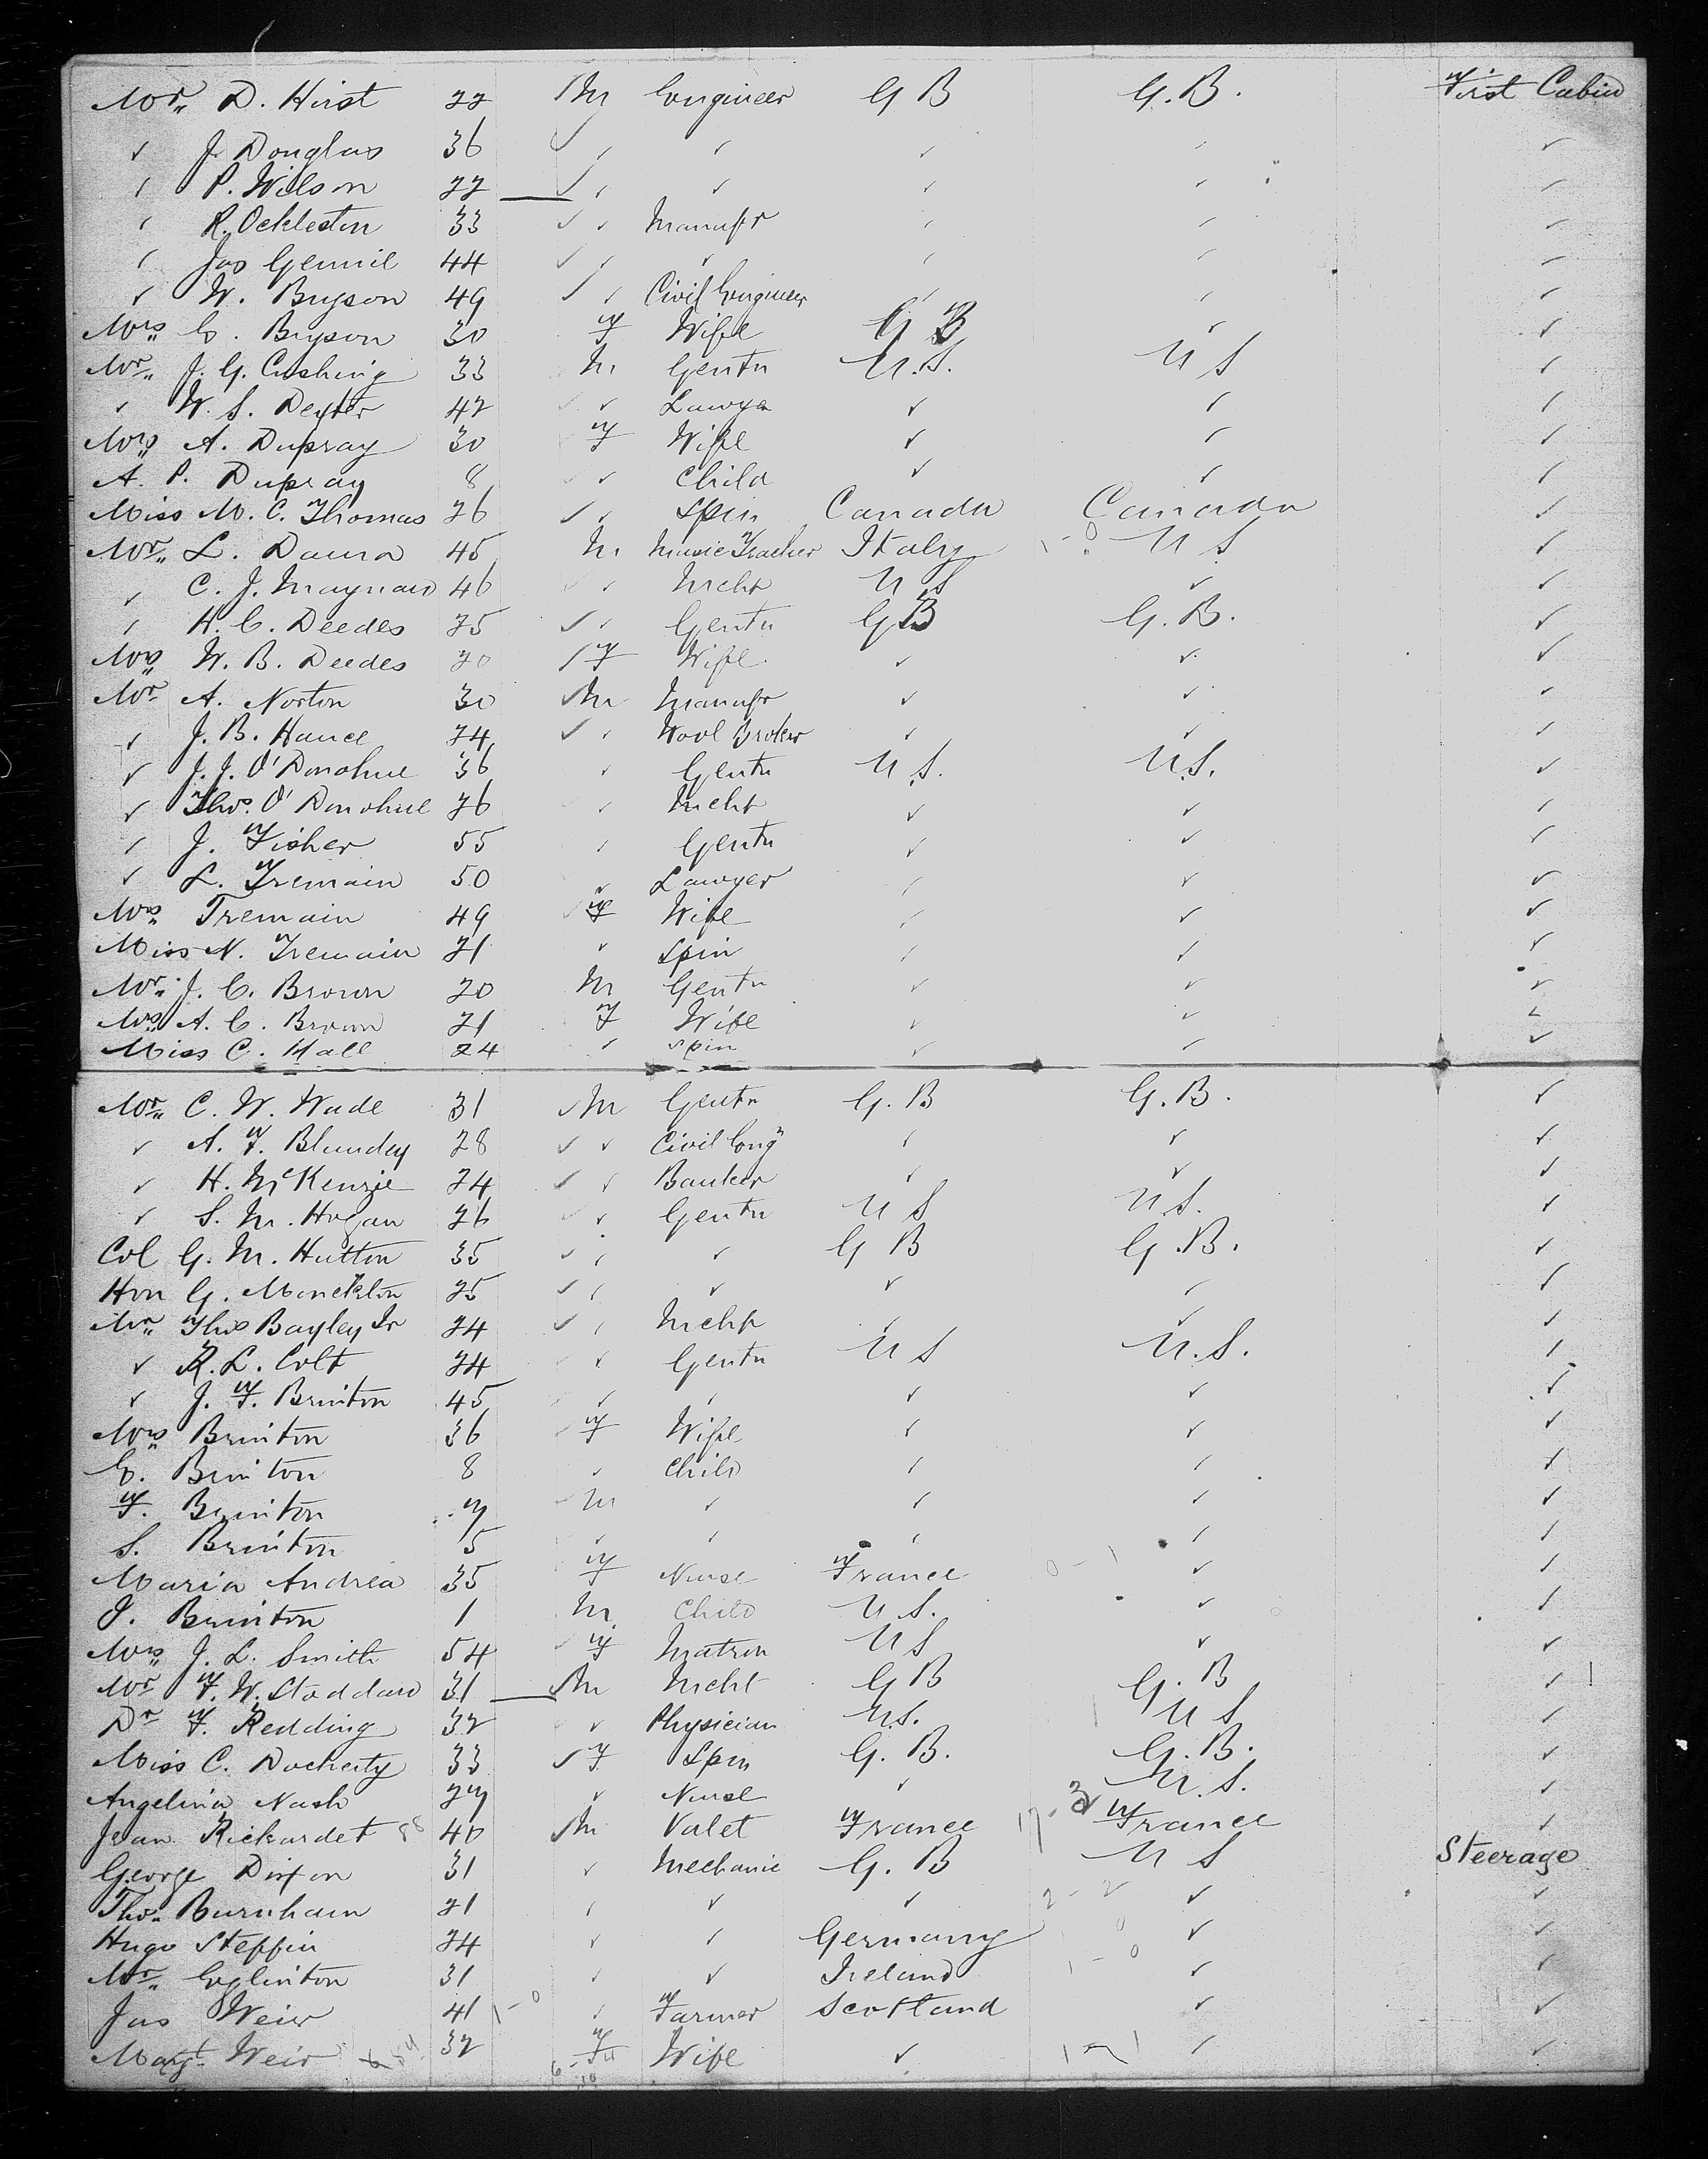 Mr. D. Hirst 22 M Engineer G B G.B. First Cabin
✓ J. Douglas 36 ✓ ✓ ✓ ✓ ✓ ✓
✓ P. Wilson 22 ✓ ✓ ✓ ✓ ✓ ✓
✓ R. Ockleston 33 ✓ ✓ Manufr ✓ ✓ ✓
✓ Jas Gemmil 44 ✓ ✓ ✓ ✓ ✓ ✓
✓ W. Bryson 49 ✓ ✓ Civil Engineer ✓ ✓ ✓
Mrs. E. Bryson 30 F Wife G B ✓ ✓
Mr. J. G. Cushing 33 M Gentn U.S. U S ✓
✓ W. S. Dexter 42 ✓ ✓ Lawyer ✓ ✓ ✓
Mrs A. Dupray 30 F Wife ✓ ✓ ✓
A. P. Dupray 8 ✓ ✓ Child ✓ ✓ ✓
Miss M. C. Thomas 26 ✓ ✓ Spin Canada Canada ✓
Mr. L. Dauna 45 M Music Teacher Italy U S ✓
✓ C. J. Maynard 46 ✓ ✓ Mcht U S ✓ ✓
✓ H. C. Deedes 25 ✓ ✓ Gentn G B G.B. ✓
Mrs W. B. Deedes 20 ✓ F Wife ✓ ✓ ✓
Mr A. Norton 30 ✓ M Manufr ✓ ✓ ✓
✓ J. B. Hance 24 ✓ ✓ Wool Broker ✓ ✓ ✓
✓ J. J. O'Donohue 36 ✓ Gentn U.S. U.S. ✓
✓ Thos. O'Donohue 26 ✓ Mcht ✓ ✓ ✓
✓ J. Fisher 55 ✓ Gentn ✓ ✓ ✓
✓ L. Tremain 50 ✓ Lawyer ✓ ✓ ✓
Mrs. Tremain 49 F Wife ✓ ✓ ✓
Miss N. Tremain 21 ✓ Spin ✓ ✓ ✓
Mr. J. C. Brown 20 M Gentn ✓ ✓ ✓
Mrs. A. C. Brown 21 F Wife ✓ ✓ ✓
Miss C. Hall 24 ✓ Spin ✓ ✓ ✓
Mr. C. W. Wade 31 ✓ M Gentn G. B G.B. ✓
✓ A. F. Blundey 28 ✓ ✓ Civil Engr ✓ ✓ ✓
✓ H. McKenzie 24 ✓ ✓ Banker ✓ ✓ ✓
✓ S. M. Hogan 26 ✓ ✓ Gentn U S U.S. ✓
Col G. M. Hutton 35 ✓ ✓ ✓ G B G.B. ✓
Hon G. Monckton 25 ✓ ✓ ✓ ✓ ✓ ✓
Mr. Thos Bayley Jr 24 ✓ ✓ Mcht ✓ ✓ ✓
✓ R. L. Colt 24 ✓ Gentn U S U.S. ✓
✓ J. F. Brinton 45 ✓ ✓ ✓ ✓ ✓
Mrs. Brinton 36 F Wife ✓ ✓ ✓
E. Brinton 8 ✓ Child ✓ ✓ ✓
F. Brinton 7 M ✓ ✓ ✓ ✓
S. Brinton 5 ✓ ✓ ✓ ✓ ✓
Maria Andrea 35 F Nurse France ✓ ✓
J. Brinton 1 M Child U.S. ✓ ✓
Mrs. J. L. Smith 54 F Matron U S ✓ ✓
Mr F. W. Stoddard 31 ✓ M Mcht G B G.B ✓
Dr F. Redding 32 ✓ Physician U.S. U S ✓
Miss C. Docherty 33 ✓ F Spin G. B. G. B. ✓
Angelina Nash 27 ✓ Nurse ✓ U.S. ✓
Jean Rickardet 40 ✓ M Valet France France ✓
George Dixon 31 ✓ Mechanic G. B U S Steerage
Thos. Burnham 21 ✓ ✓ ✓ ✓ ✓
Hugo Steffin 24 ✓ ✓ Germany ✓ ✓
Mr. Eglinton 31 ✓ ✓ Ireland ✓ ✓
Jas Weir 41 ✓ Farmer Scotland ✓ ✓
Margt. Weir 32 F Wife ✓ ✓ ✓